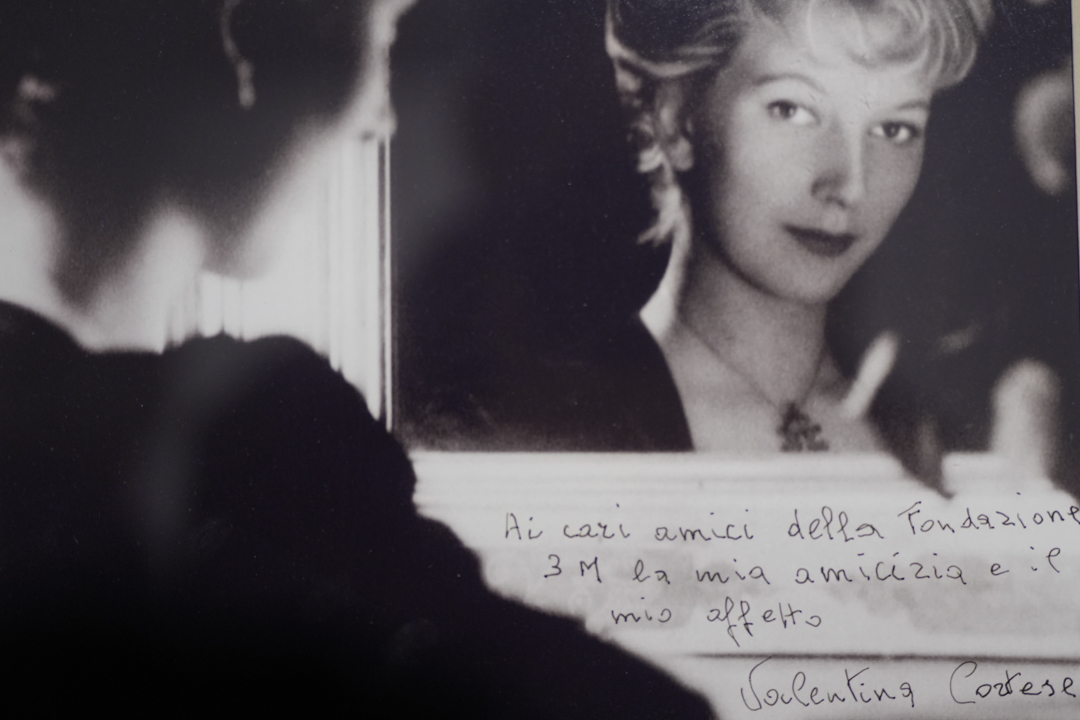 Ai cari amici della Fondazione
3M la mia amicizia e il
mio affetto
Valentina Cortese